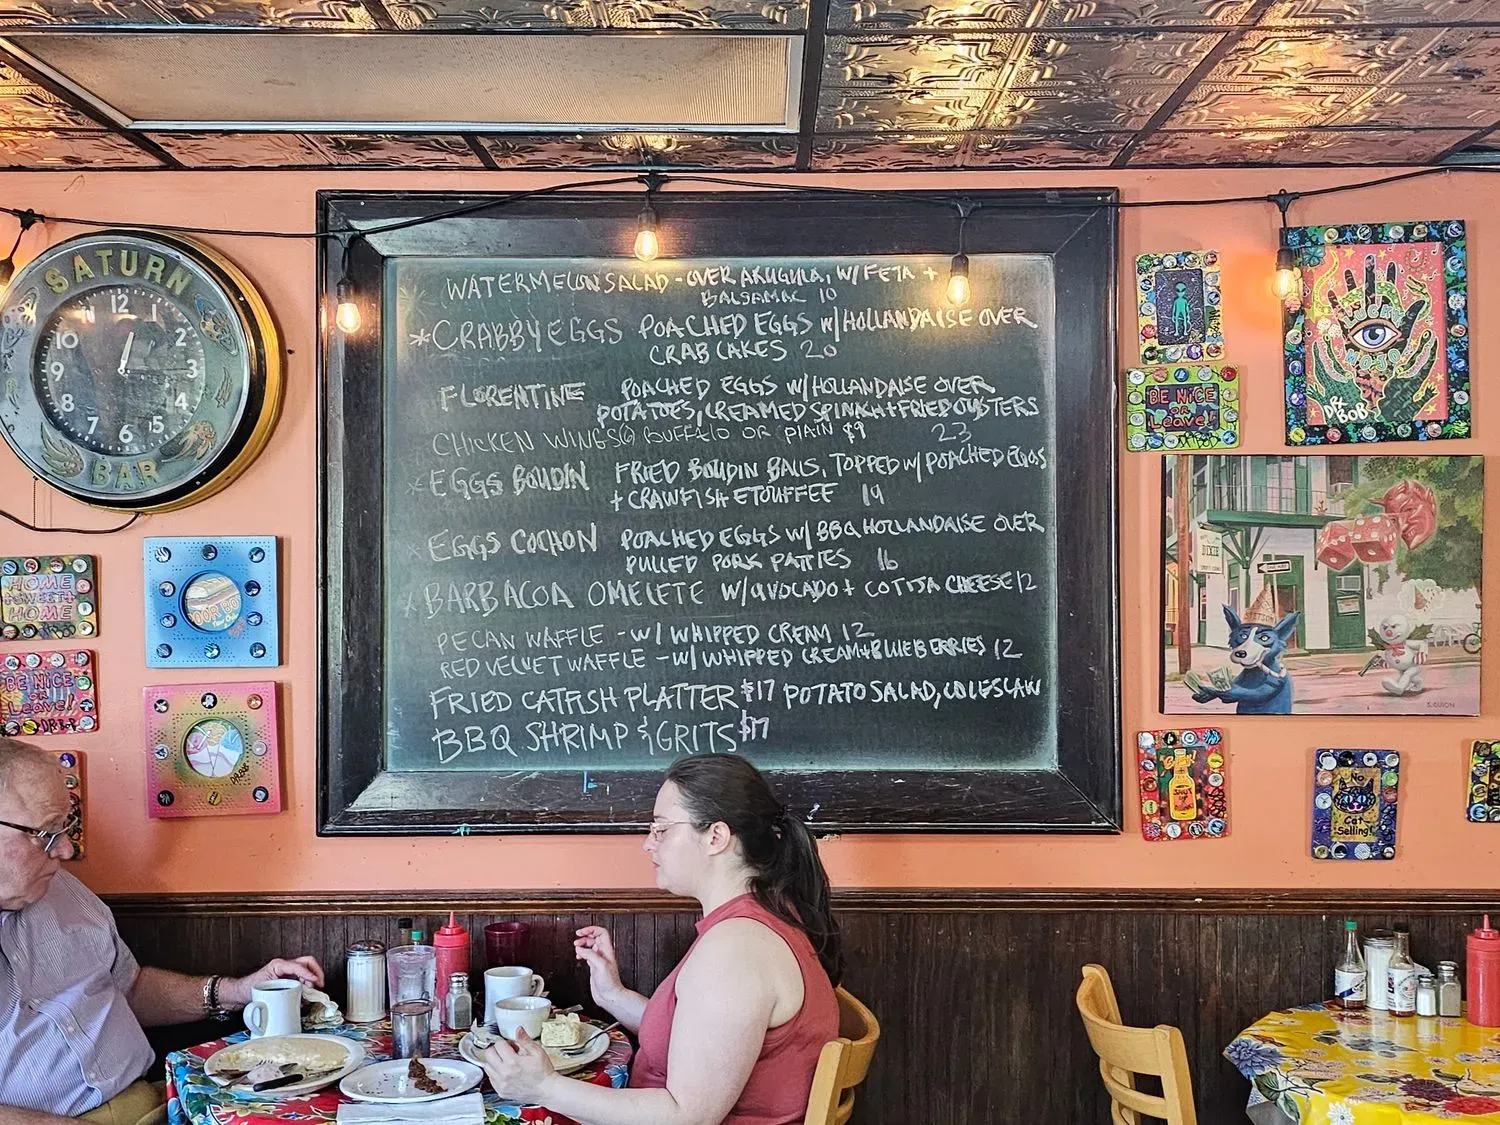 SATURN
12
2
3
4
5
6
7
8
9
10
BAR
WATERMELON SALAD - OVER ARUGULA, W/ FETA +
BALSAMIC 10
*CRABBY EGGS POACHED EGGS W/ HOLLANDAISE OVER
CRAB CAKES 20
FLORENTINE POACHED EGGS W/ HOLLANDAISE OVER
POTATOES, CREAMED SPINACH + FRIED OYSTERS
CHICKEN WINGS@ BUFFALO OR PLAIN $9 23
*EGGS BOUDIN FRIED BOUDIN BALLS, TOPPED W/ POACHED EGGS
+ CRAWFISH ETOUFFEE 19
*EGGS COCHON POACHED EGGS W/ BBQ HOLLANDAISE OVER
PULLED PORK PATTIES 16
*BARBACOA OMELETE W/ AVOCADO + COTIJA CHEESE 12
PECAN WAFFLE - W/ WHIPPED CREAM 12
RED VELVET WAFFLE - W/ WHIPPED CREAM + BLUEBERRIES 12
FRIED CATFISH PLATTER $17 POTATO SALAD, COLESLAW
BBQ SHRIMP & GRITS $17
HOME
SWEET
HOME
BE NICE
OR
Leave!
DR BOB
DR.BOB
BE NICE
OR
Leave!
DR BOB
LUCKY
MOJO
DR BOB
DIXIE
S. GUION
No
Cat
Selling!